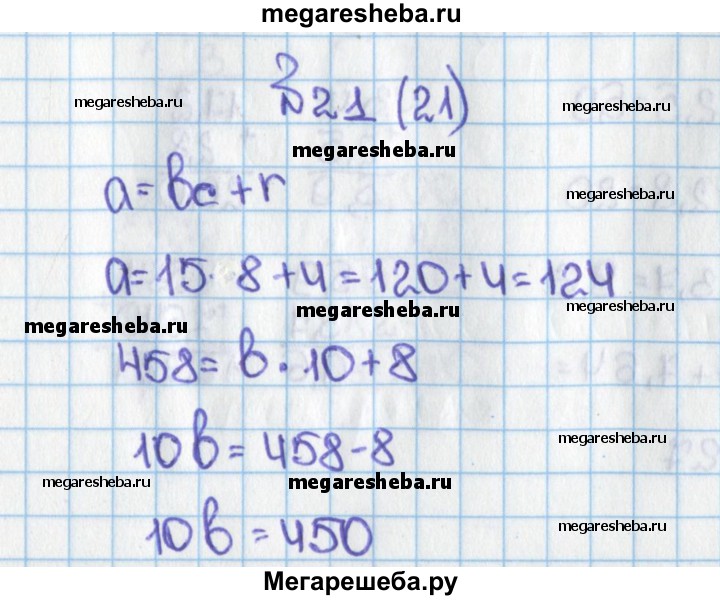 megaresheba.ru
№21 (21)
megaresheba.ru megaresheba.ru
megaresheba.ru
a = bc + r
megaresheba.ru
a = 15 · 8 + 4 = 120 + 4 = 124
megaresheba.ru megaresheba.ru
megaresheba.ru
458 = b · 10 + 8
10b = 458 - 8
megaresheba.ru
megaresheba.ru megaresheba.ru
10b = 450
megaresheba.ru
Мегарешеба.ру